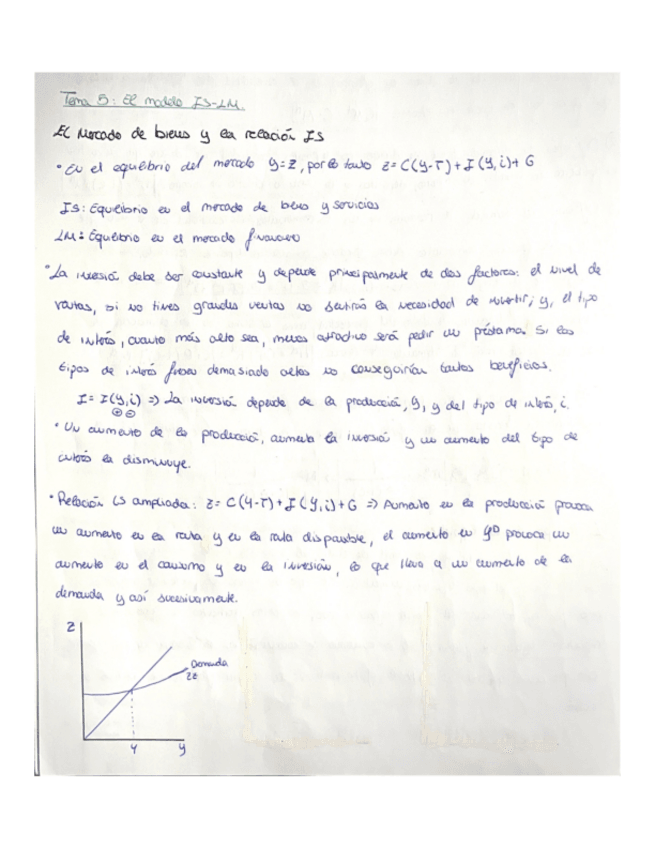 Tema 5: El modelo IS-LM.
El Mercado de bienes y la relación IS
• En el equilibrio del mercado Y=Z, por lo tanto Z=C(Y-T)+I(Y,i)+G
IS: Equilibrio en el mercado de bienes y servicios
LM: Equilibrio en el mercado financiero
• La inversión debe ser constante y depende principalmente de dos factores: el nivel de
ventas, si no tines grandes ventas no sentirás la necesidad de invertir; y, el tipo
de interés, cuanto más alto sea, menos atractivo será pedir un préstamo. Si los
tipos de interés fueran demasiado altos no conseguirían tantos beneficios.
I = I(Y,i) => La inversión depende de la producción, Y, y del tipo de interés, i.
⊕ ⊖
• Un aumento de la producción, aumenta la inversión y un aumento del tipo de
interés la disminuye.
• Relación IS ampliada: Z= C(Y-T)+I(Y,i)+G => Aumento en la producción provoca
un aumento en la renta y en la renta disponible, el aumento en YD provoca un
aumento en el consumo y en la inversión, lo que lleva a un aumento de la
demanda y así sucesivamente.
Z
Demanda
ZZ
Y
Y